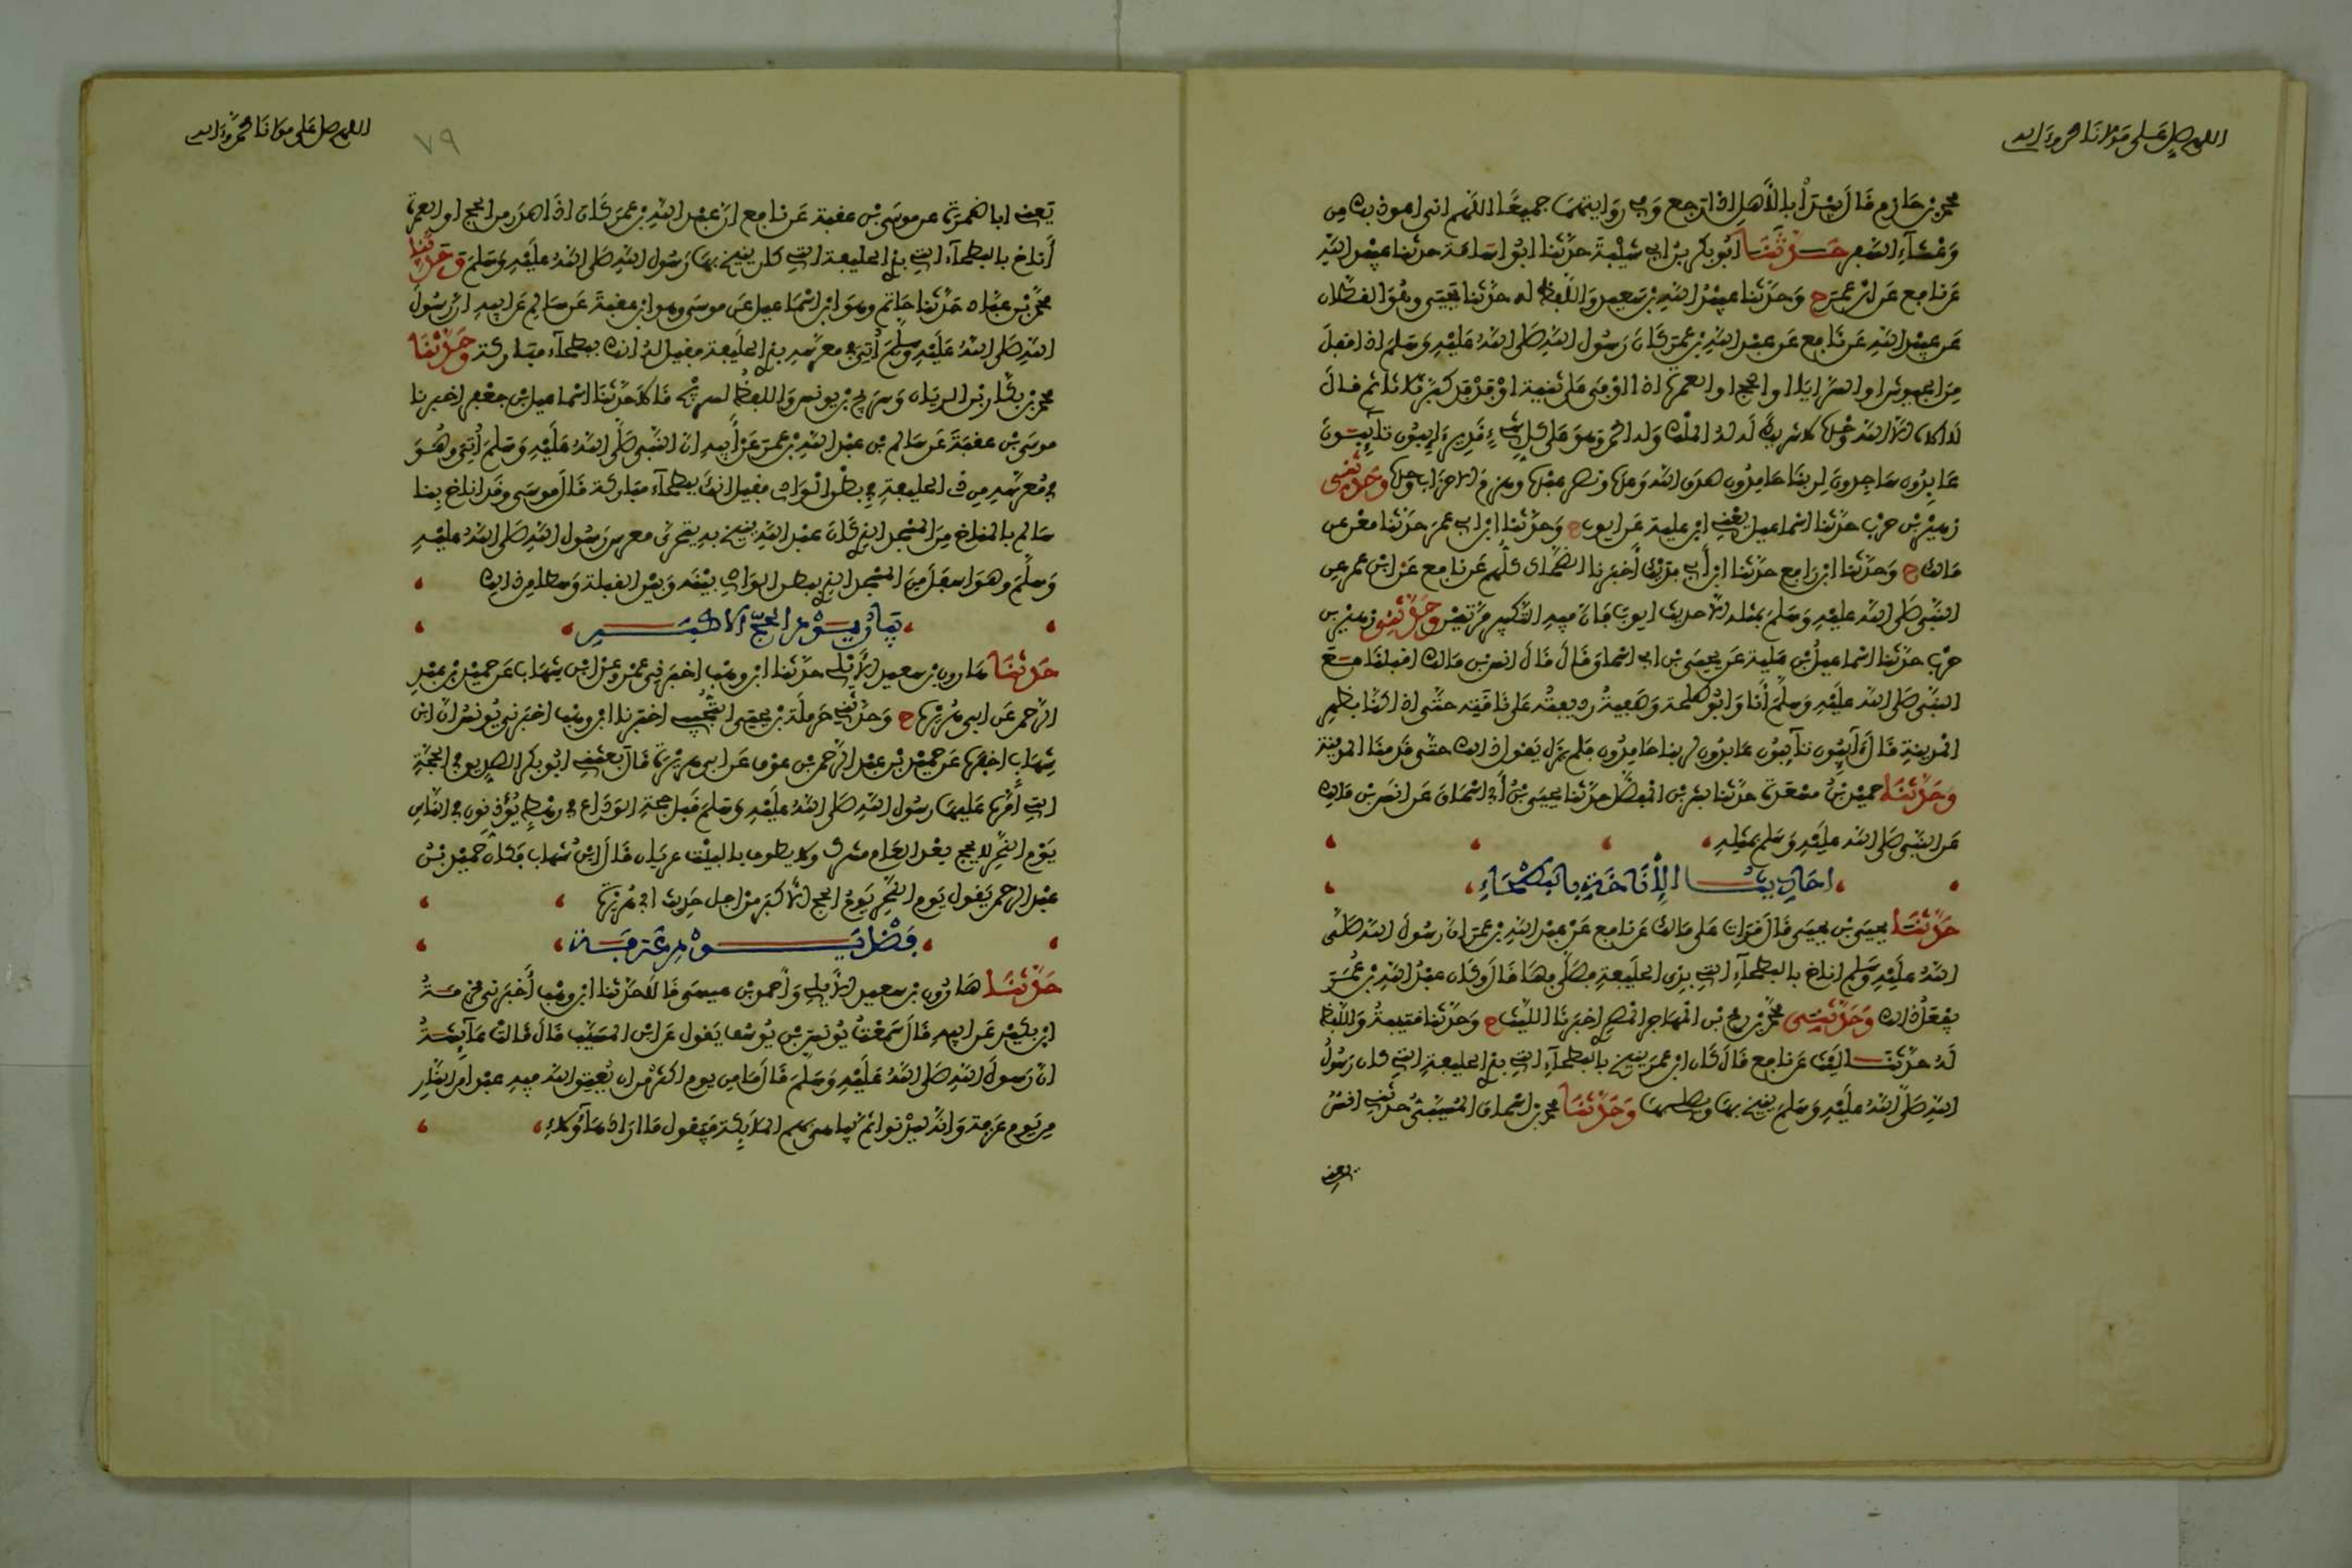 اللهم صل على مولانا محمد وءاله
محمد بن خازم قال يبدأ بالأهل إذا رجع وفي روايتهما جميعا اللهم اني اعوذ بك من
وعثاء السفر حدثنا ابو بكر بن ابي شيبة حدثنا ابو اسامة حدثنا عبيد الله
عن نافع عن ابن عمر ح وحدثنا عبيد الله بن سعيد واللفظ له حدثنا يحيى وهو القطان
عن عبيد الله عن نافع عن عبد الله بن عمر كان رسول الله صلى الله عليه وسلم اذا قفل
من الجيوش او السرايا او الحج او العمرة اذا اوفى على ثنية او فدفد كبر ثلاثا ثم قال
لا اله الا الله وحده لا شريك له له الملك وله الحمد وهو على كل شيء قدير ءايبون تائبون
عابدون ساجدون لربنا حامدون صدق الله وعده ونصر عبده وهزم الاحزاب وحده وحدثني
زهير بن حرب حدثنا اسماعيل يعني ابن علية عن ايوب ح وحدثنا ابن ابي عمر حدثنا معن عن
مالك ح وحدثنا ابن رافع حدثنا ابن أبي فديك أخبرنا الضحاك كلهم عن نافع عن ابن عمر عن
النبي صلى الله عليه وسلم بمثله الا حديث ايوب فان فيه التكبير مرتين وحدثني زهير بن
حرب حدثنا اسماعيل بن علية عن يحيى بن ابي اسحاق قال قال انس بن مالك اقبلنا مع
النبي صلى الله عليه وسلم أنا وابو طلحة وصفية رديفته على ناقته حتى اذا كنا بظهر
المدينة قال ءايبون تائبون عابدون لربنا حامدون فلم يزل يقول ذلك حتى قدمنا المدينة
وحدثنا حميد بن مسعدة حدثنا بشر بن المفضل حدثنا يحيى بن أبي اسحاق عن انس بن مالك
عن النبي صلى الله عليه وسلم بمثله
احاديث الإناخة بالبطحاء
حدثنا يحيى بن يحيى قال قرأت على مالك عن نافع عن عبد الله بن عمر ان رسول الله صلى
الله عليه وسلم اناخ بالبطحاء التي بذي الحليفة فصلى بها قال وكان عبد الله بن عمر
يفعل ذلك وحدثني محمد بن رمح بن المهاجر المصري اخبرنا الليث ح وحدثنا قتيبة واللفظ
له حدثنا ليث عن نافع قال كان ابن عمر ينيخ بالبطحاء التي بذي الحليفة التي كان رسول
الله صلى الله عليه وسلم ينيخ بها ويصلي بها وحدثنا محمد بن اسحاق المسيبي حدثني انس
يعني
اللهم صل على مولانا محمد وءاله
٧٩
يعني ابا ضمرة عن موسى بن عقبة عن نافع ان عبد الله بن عمر كان اذا صدر من الحج او العمرة
أناخ بالبطحاء التي بذي الحليفة التي كان ينيخ بها رسول الله صلى الله عليه وسلم وحدثنا
محمد بن عباد حدثنا حاتم وهو ابن اسماعيل عن موسى وهو ابن عقبة عن سالم عن ابيه ان رسول
الله صلى الله عليه وسلم أتي في معرسه بذي الحليفة فقيل له انك ببطحاء مباركة وحدثنا
محمد بن بكار بن الريان وسريج بن يونس واللفظ لسريج قالا حدثنا اسماعيل بن جعفر اخبرنا
موسى بن عقبة عن سالم بن عبد الله بن عمر عن أبيه ان النبي صلى الله عليه وسلم أتي وهو
في معرسه من ذي الحليفة في بطن الوادي فقيل انك ببطحاء مباركة قال موسى وقد اناخ بنا
سالم بالمناخ من المسجد الذي كان عبد الله ينيخ به يتحرى معرس رسول الله صلى الله عليه
وسلم وهو اسفل من المسجد الذي ببطن الوادي بينه وبين القبلة وسطا من ذلك
بيان يوم الحج الاكبر
حدثنا هارون بن سعيد الأيلي حدثنا ابن وهب اخبرني عمرو عن ابن شهاب عن حميد بن عبد
الرحمن عن ابي هريرة ح وحدثني حرملة بن يحيى التجيبي اخبرنا ابن وهب اخبرني يونس ان ابن
شهاب اخبره عن حميد بن عبد الرحمن بن عوف عن ابي هريرة قال بعثني ابو بكر الصديق في الحجة
التي أمره عليها رسول الله صلى الله عليه وسلم قبل حجة الوداع في رهط يؤذنون في الناس
يوم النحر لا يحج بعد العام مشرك ولا يطوف بالبيت عريان قال ابن شهاب فكان حميد بن
عبد الرحمن يقول يوم النحر يوم الحج الأكبر من اجل حديث ابي هريرة
فضل يوم عرفة
حدثنا هارون بن سعيد الأيلي وأحمد بن عيسى قالا حدثنا ابن وهب أخبرني مخرمة
ابن بكير عن ابيه قال سمعت يونس بن يوسف يقول عن ابن المسيب قال قالت عائشة
ان رسول الله صلى الله عليه وسلم قال ما من يوم اكثر من ان يعتق الله فيه عبدا من النار
من يوم عرفة وانه ليدنو ثم يباهي بهم الملائكة فيقول ما اراد هاؤلاء